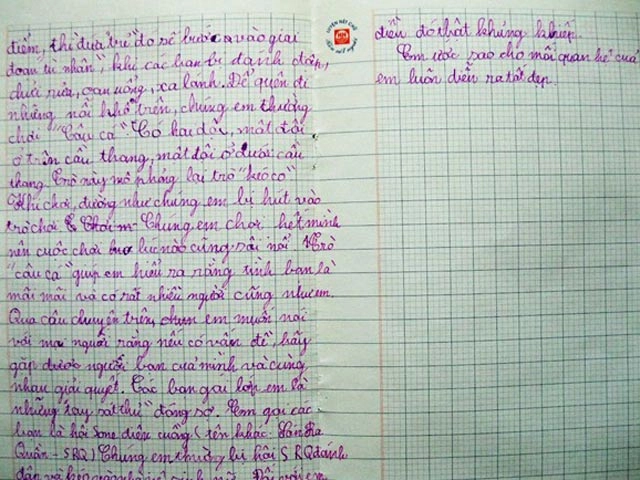 điểm, thì đứa trẻ đó sẽ bước vào giai
đoạn "tù nhân", khi các bạn bị đánh đập,
chửi rủa, oan uổng, xa lánh. Để quên đi
những nỗi khổ trên, chúng em thường
chơi "Câu cá". Có hai đội, một đội
ở trên cầu thang, một đội ở dưới cầu
thang. Trò này mô phỏng lại trò "kéo co"
Khi chơi, dường như chúng em bị hút vào
trò chơi. Chúng em chơi hết mình
nên cuộc chơi lúc nào cũng sôi nổi. Trò
"câu cá" giúp em hiểu ra rằng tình bạn là
mãi mãi và có rất nhiều người cũng như em.
Qua câu chuyện trên, em muốn nói
với mọi người rằng nếu có vấn đề, hãy
gặp được người bạn của mình và cùng
nhau giải quyết. Các bạn gái lớp em là
những "tay sát thủ" đáng sợ. Em gọi các
bạn là hội Sone điên cuồng (tên khác:
Quân - SRQ) Chúng em thường bị hội SRQ đánh
đập và
diễn đó thật khủng khiếp.
Em ước sao cho mối quan hệ của
em luôn diễn ra tốt đẹp.